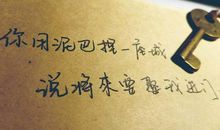 你用泥巴捏一座城
说将来要娶我进门